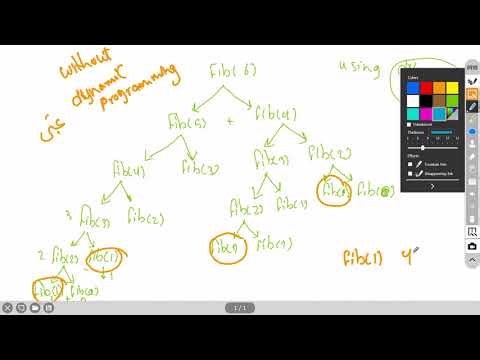 without
dynamic
programming
using
fib(6)
fib(5) + fib(4)
fib(4) fib(3) fib(3) fib(2)
3 fib(3) fib(2) fib(2) fib(1) fib(1) fib(0)
2 fib(2) fib(1) fib(1)
fib(1) fib(0)
1
fib(1) 4
Colors
Thickness
Effects
1 / 1